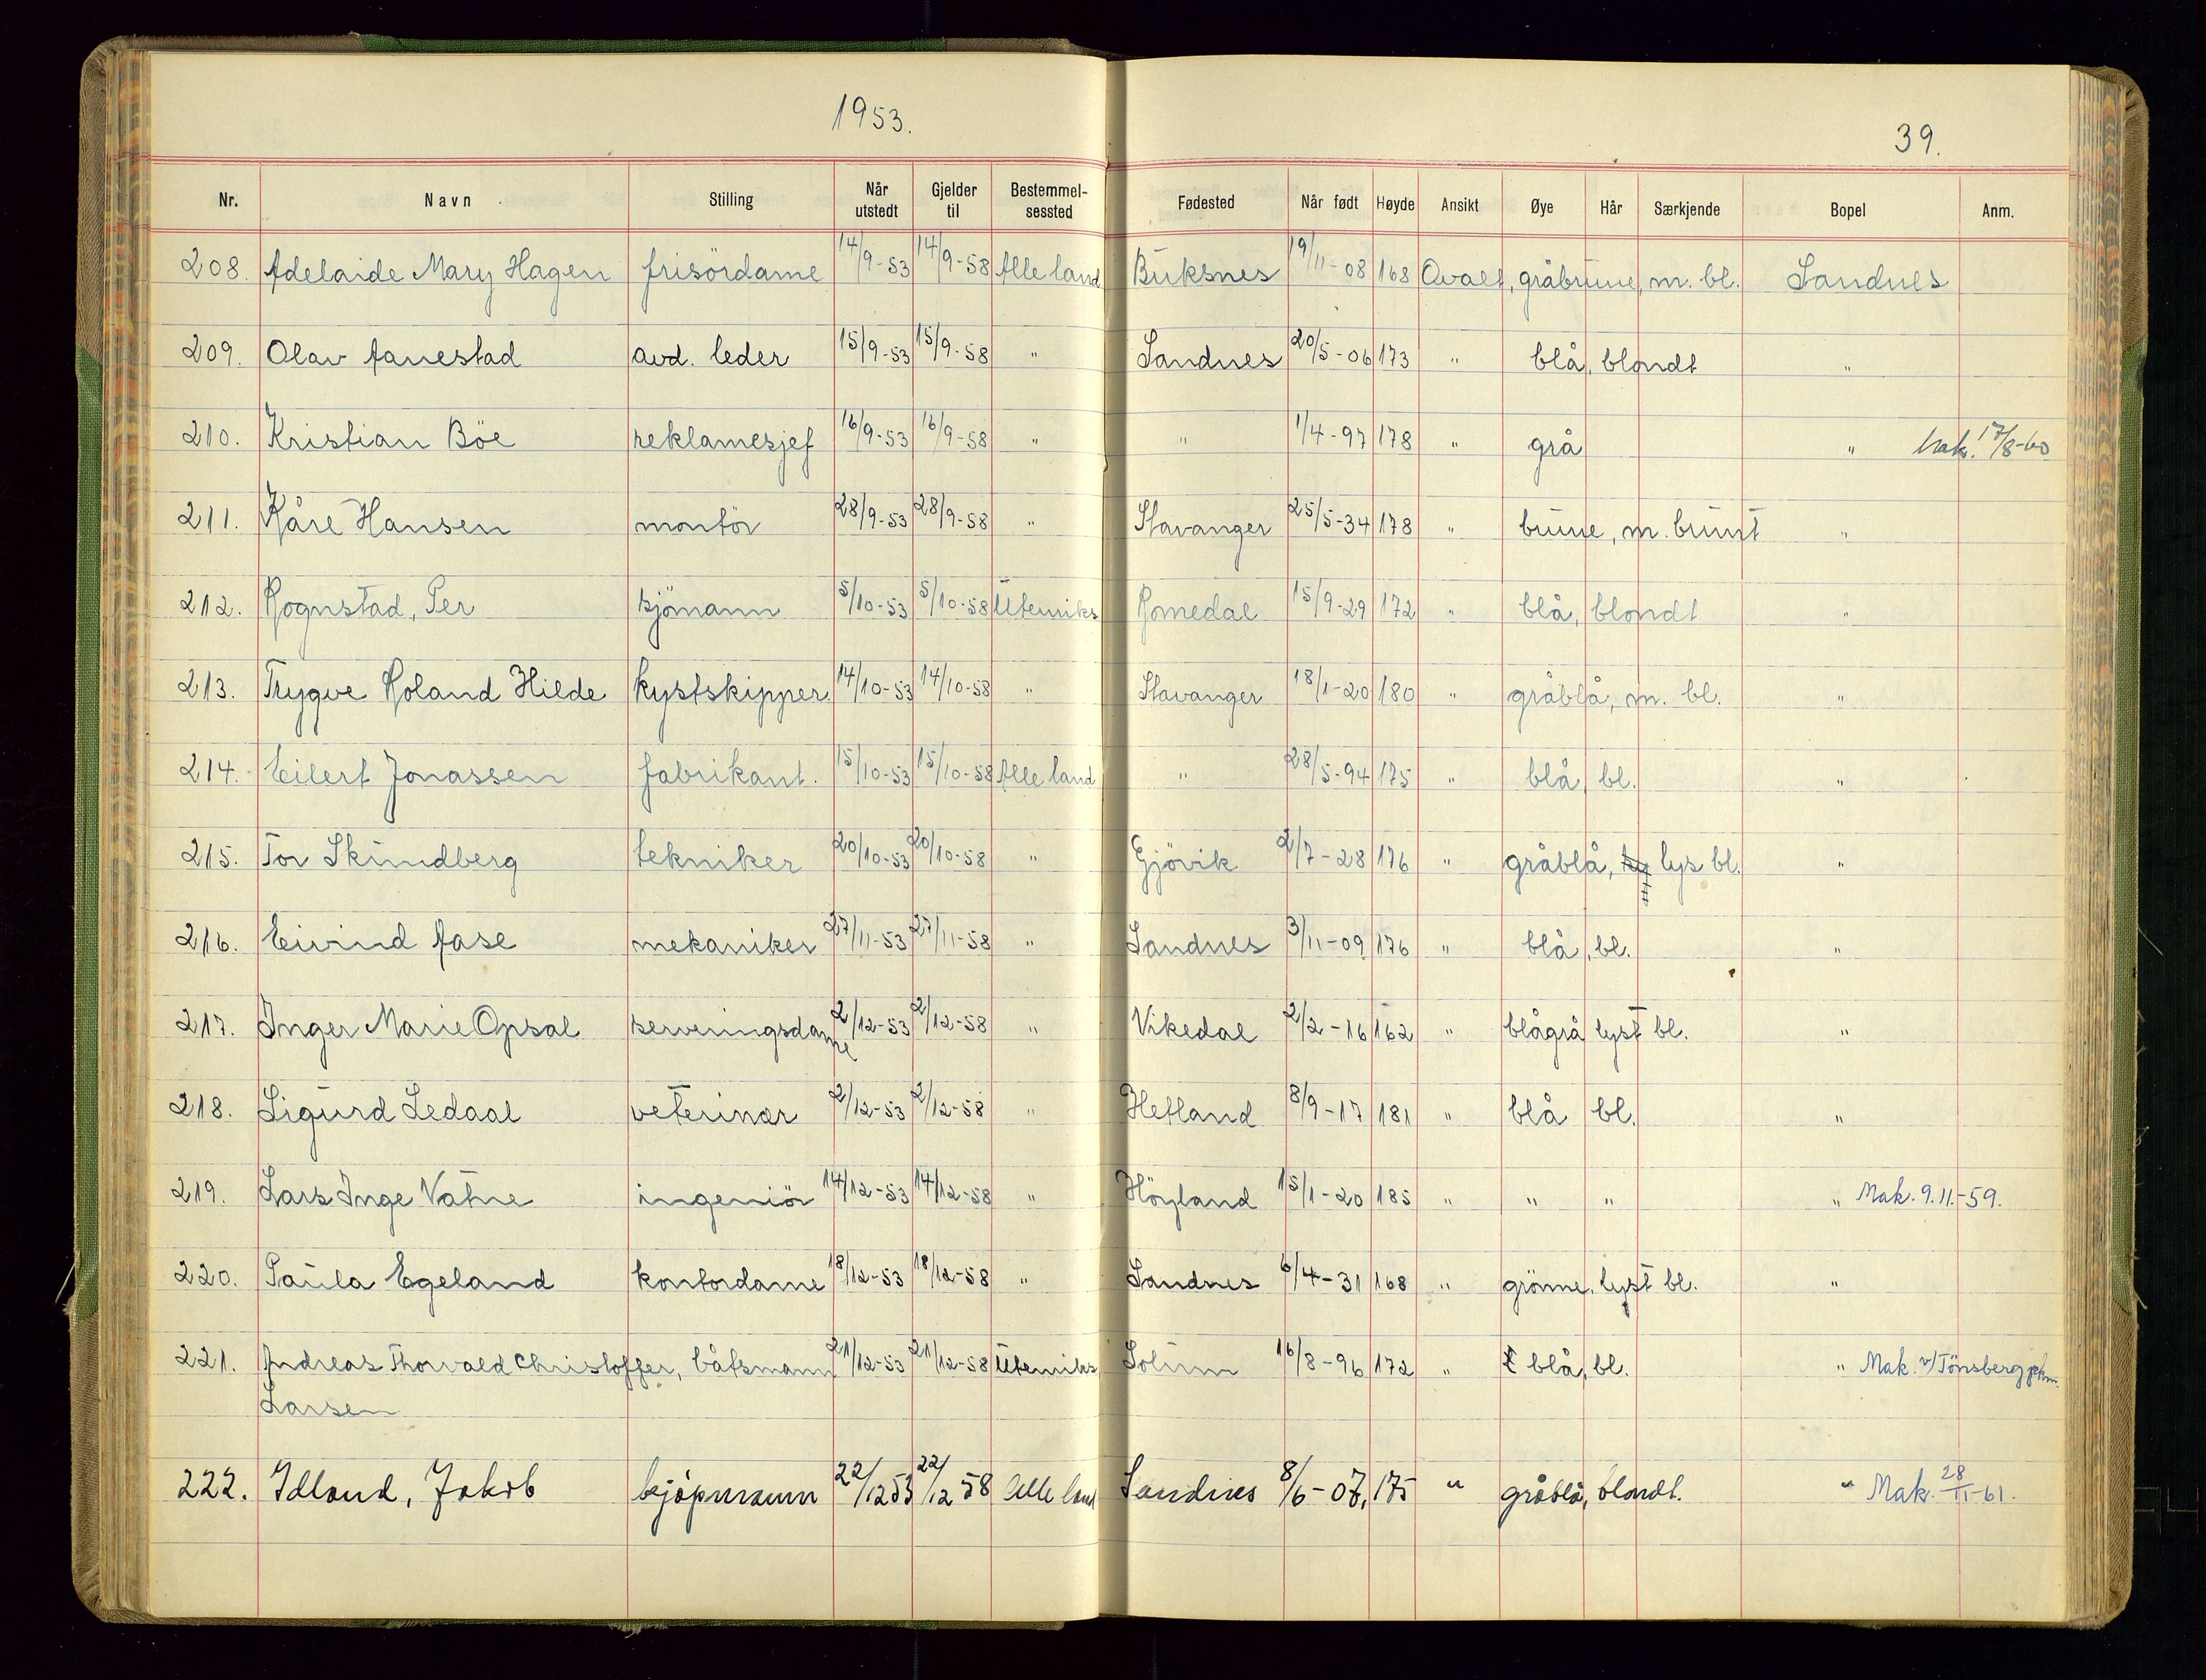 1953.
39.
Nr. Navn Stilling Når utstedt Gjelder til Bestemmel-sessted Fødested Når født Høyde Ansikt Øye Hår Særkjende Bopel Anm.
208. Adelaide Mary Hagen frisördame 14/9-53 14/9-58 Alle land Buksnes 19/11-08 168 Ovalt, gråbrune, m. bl. Sandnes
209. Olav Aanestad avd. leder 15/9-53 15/9-58 " Sandnes 20/5-06 173 " blå, blondt "
210. Kristian Böe reklamesjef 16/9-53 16/9-58 " " 1/4-97 178 " grå " Mak. 17/8-60
211. Kåre Hansen montör 28/9-53 28/9-58 " Stavanger 25/5-34 178 " brune, m. brunt "
212. Rognstad, Per sjömann 5/10-53 5/10-58 Utenriks Romedal 15/9-29 172 " blå, blondt "
213. Trygve Roland Hilde kystskipper 14/10-53 14/10-58 " Stavanger 18/1-20 180 " gråblå, m. bl. "
214. Eilert Jonassen fabrikant. 15/10-53 15/10-58 Alle land " 28/5-94 175 " blå, bl. "
215. Tor Skundberg tekniker 20/10-53 20/10-58 " Gjövik 2/7-28 176 " gråblå, lys bl. "
216. Eivind Aase mekaniker 27/11-53 27/11-58 " Sandnes 3/11-09 176 " blå, bl. "
217. Inger Marie Opsal serveringsdame 2/12-53 2/12-58 " Vikedal 2/2-16 162 " blågrå lyst bl. "
218. Sigurd Ledaal veterinær 2/12-53 2/12-58 " Hetland 8/9-17 181 " blå bl. "
219. Lars Inge Vatne ingeniör 14/12-53 14/12-58 " Höyland 15/1-20 185 " " " " Mak. 9.11.-59.
220. Paula Egeland kontordame 18/12-53 18/12-58 " Sandnes 6/4-31 168 " grönne, lyst bl. "
221. Andreas Thorvald Christoffer, båtsmann 21/12-53 21/12-58 Utenriks Solum 16/8-96 172 " blå, bl. " Mak. v/Tönsberg
Larsen
222. Idland, Jakob kjøpmann 22/12 53 22/12 58 Alle land Sandnes 8/6-07, 175 " gråblå, blondt. " Mak. 28/11-61.